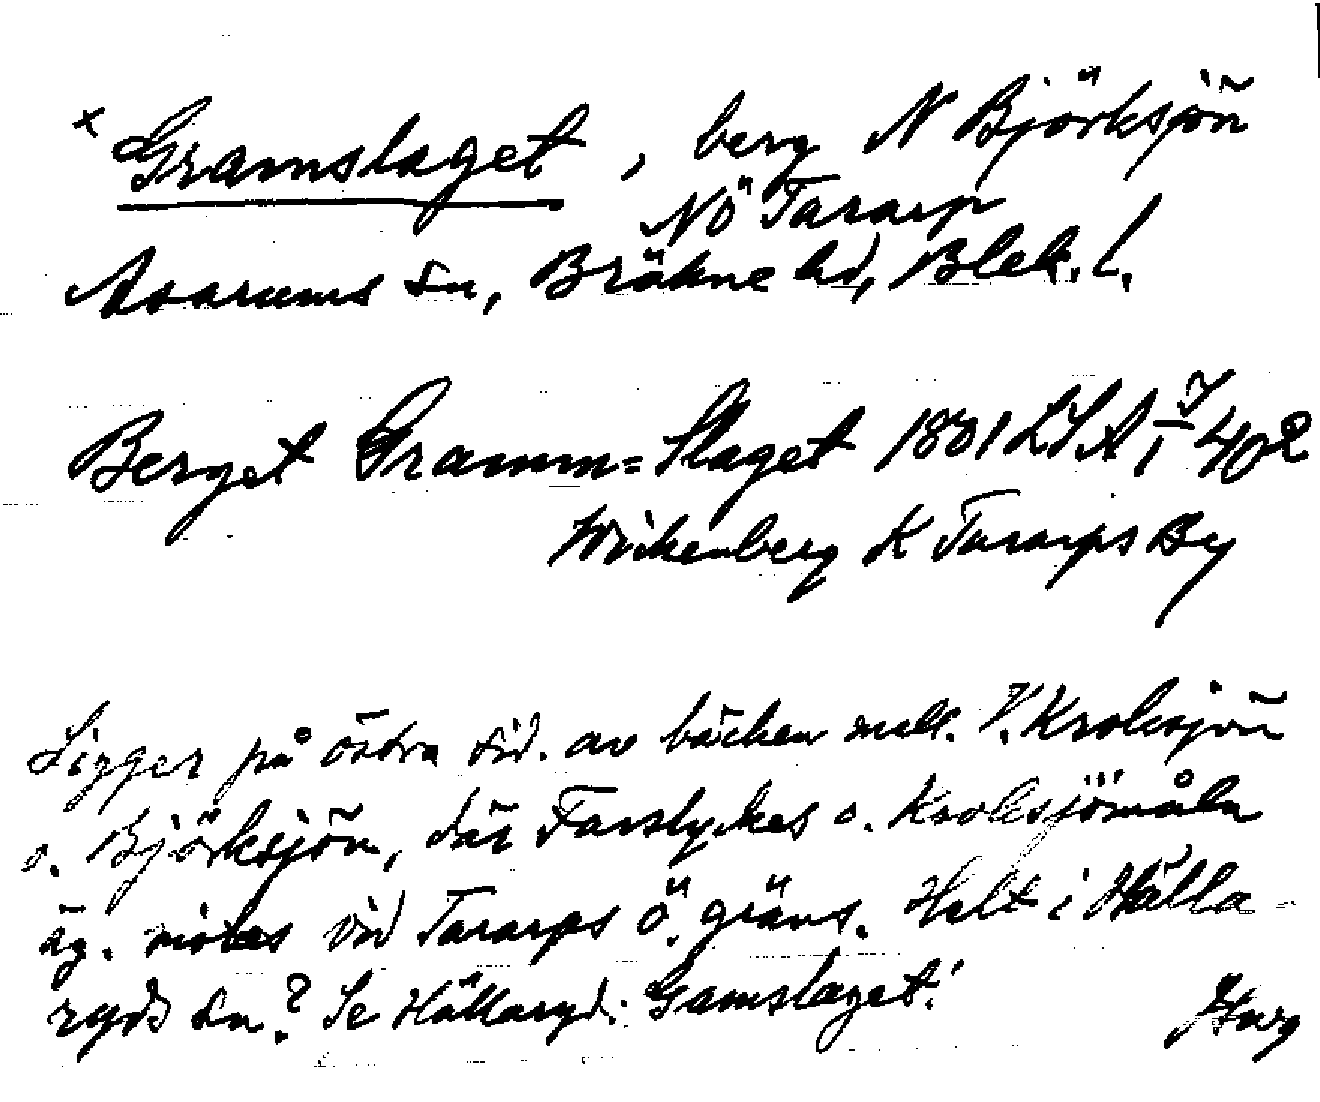 x Gramslaget, berg N Björksjön
NÖ Tararp
Asarums sn, Bräkne hd, Blek. l.
Berget Gramm=Slaget 1801 LSA I 402
Wickenberg K Tararps By
Ligger på östra sid. av bäcken mell. V. Kroksjön
o. Björksjön, där Farslyckes o. Kroksjömåla
äg. mötes vid Tararps Ö. gräns. Helt i Hälla-
ryds sn? Se Hällaryd: Gamslaget!